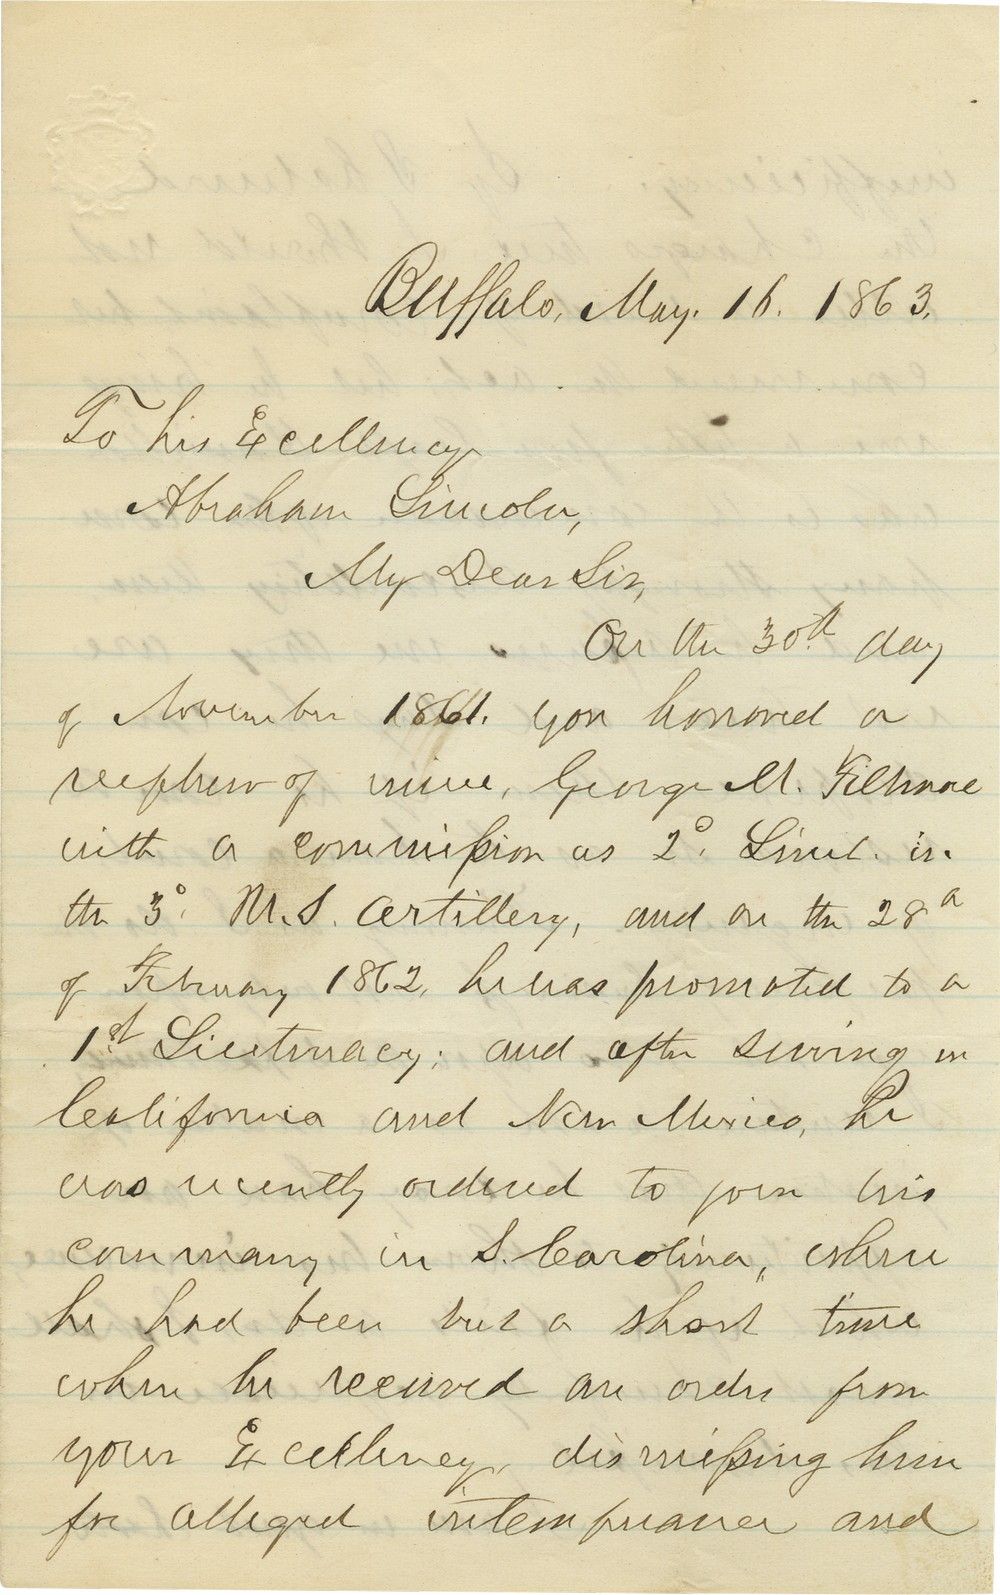 Buffalo, May. 16. 1863.
To his Excellency
Abraham Lincoln,
My Dear Sir,
On the 30th. day
of November 1861. you honored a
nephew of mine, George M. Fillmore
with a commission as 2o. Lieut. in
the 3o. U.S. Artillery, and on the 28th
of February 1862, he was promoted to a
1st. Lieutenacy; and after serving in
California and New Mexico, he
was recently ordered to join his
command in S. Carolina, where
he had been but a short time
when he received an order from
your Excellency, dismissing him
for alleged intemperance and